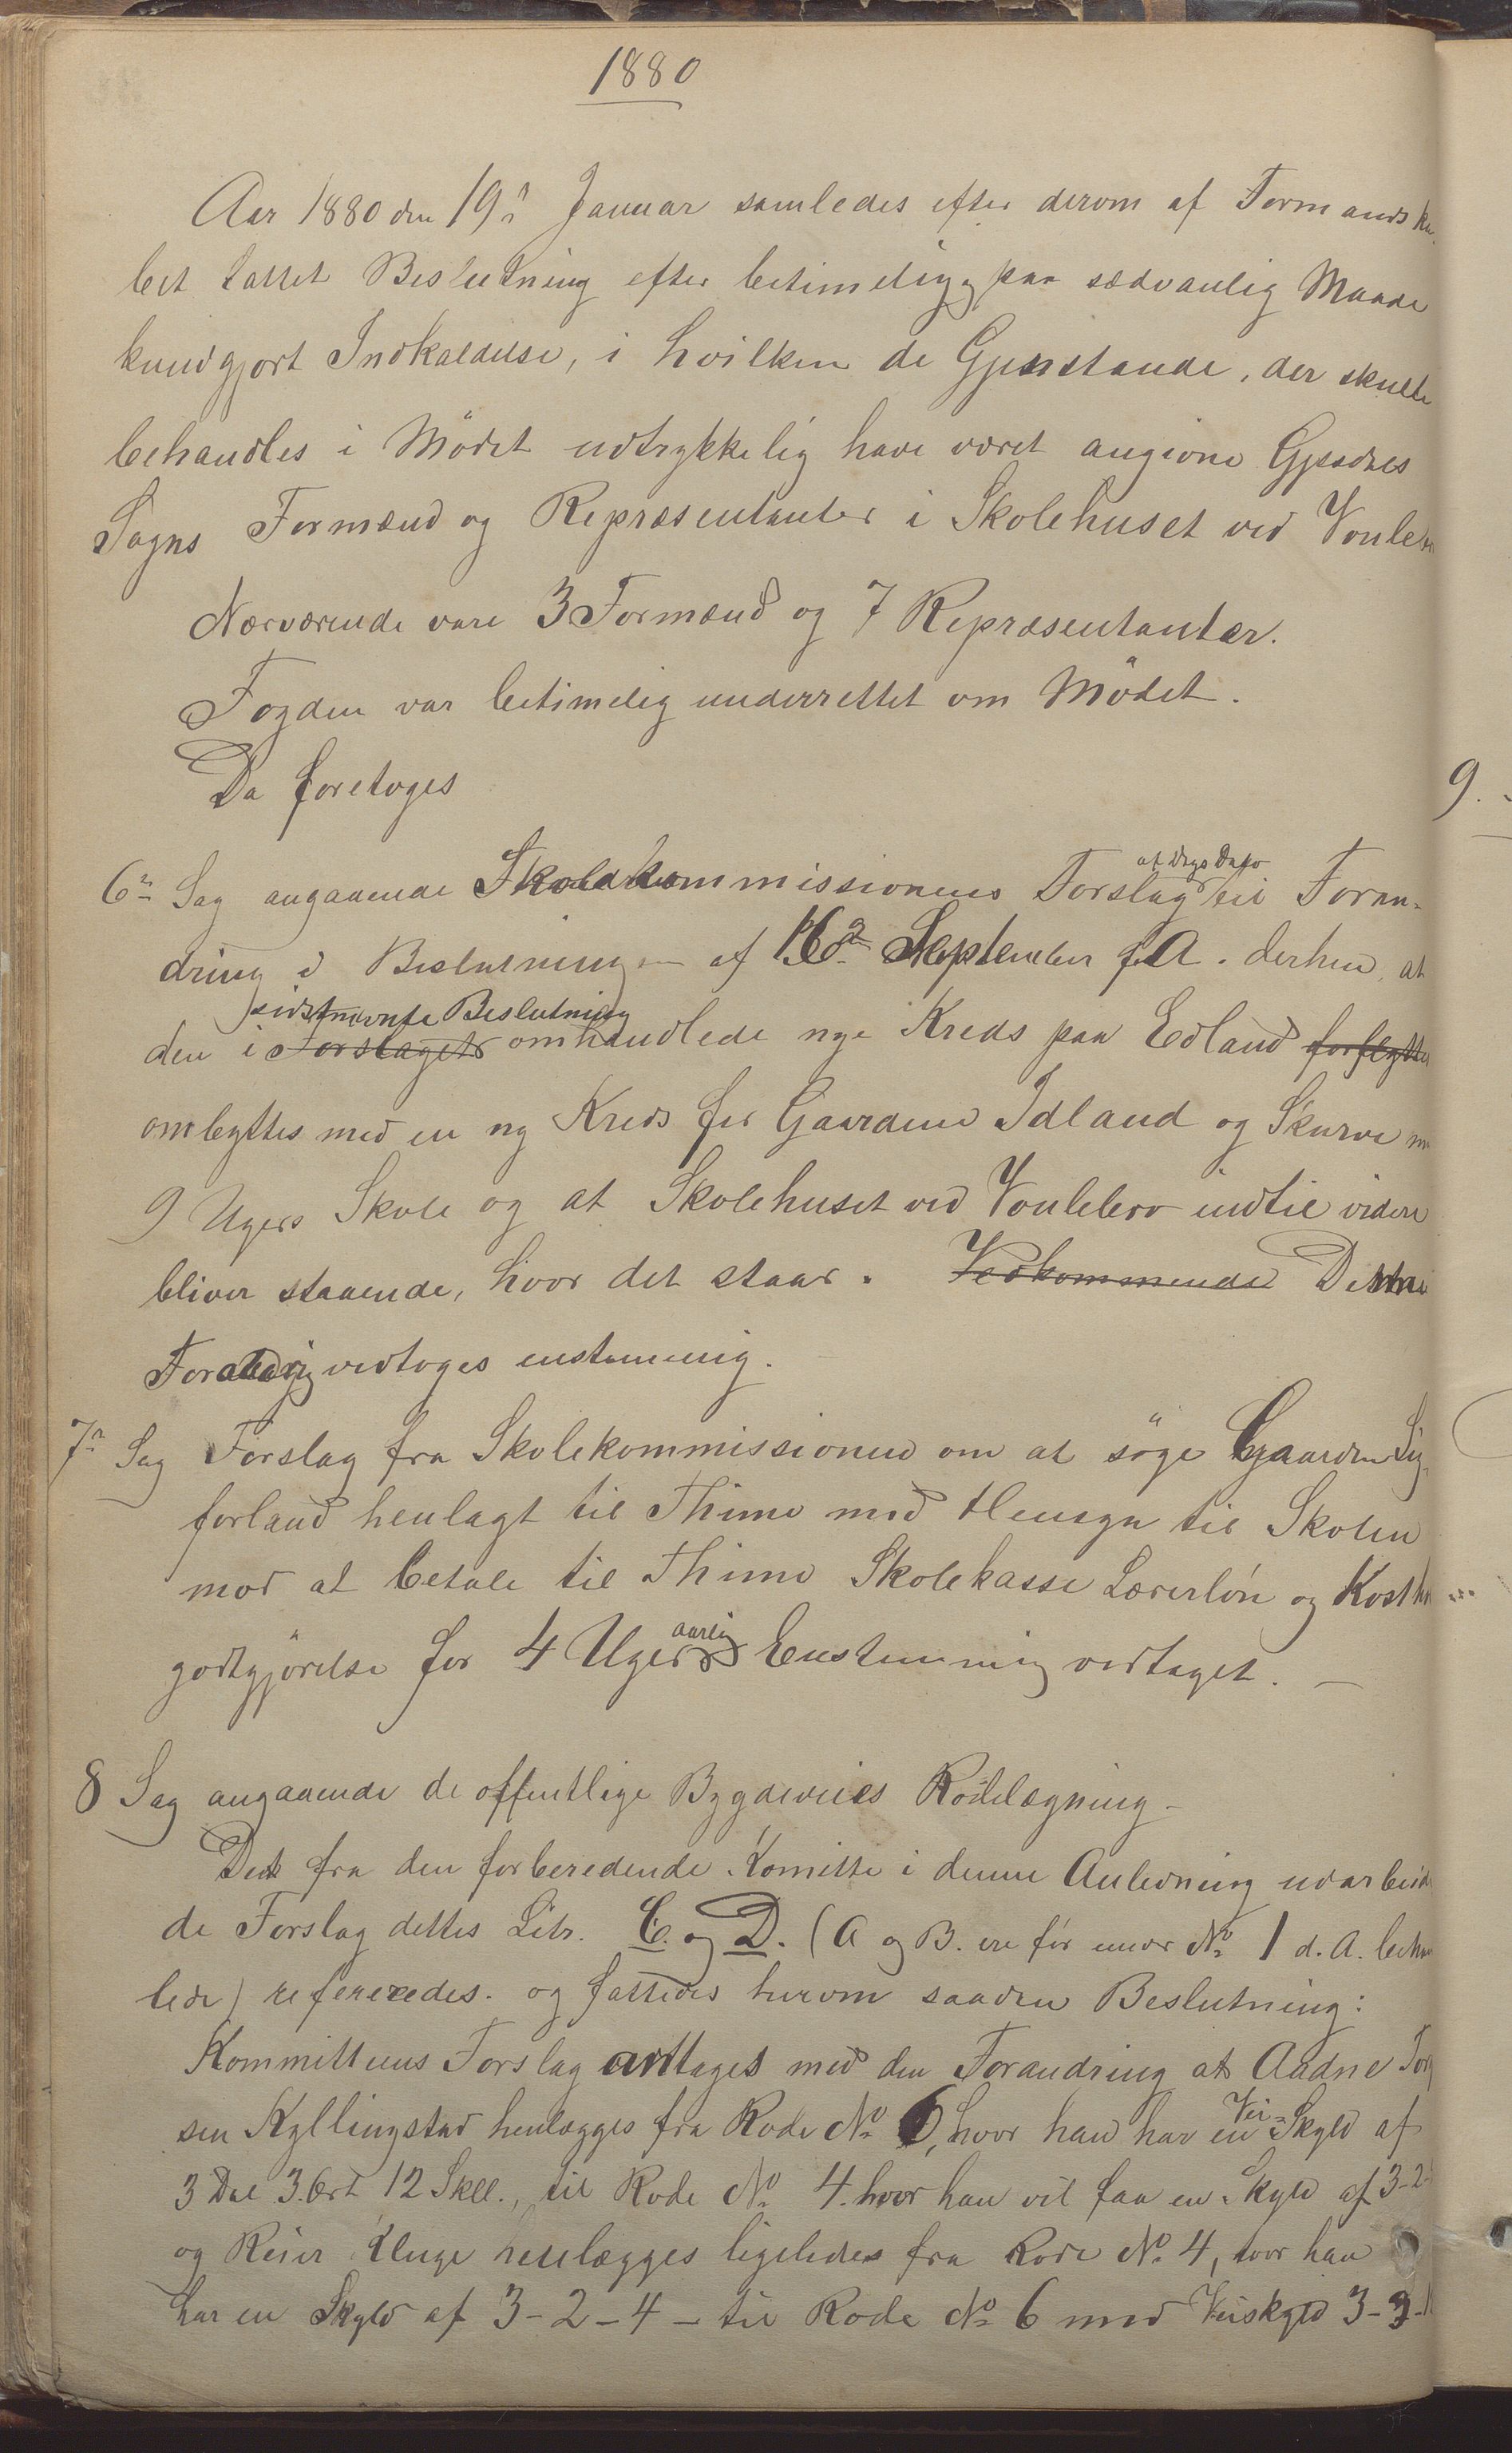 1880
Aar 1880 den 19n Januar samledes efter derom af Formandska-
bet fattet Beslutning efter betimelig, paa sædvanlig Maade
kundgjort Indkaldelse, i hvilken de Gjenstande, der skulle
behandles i Mödet udtrykkelig have været angivne Gjesdals
Sogns Formænd og Repræsentanter i Skolehuset ved Voulebro
Nærværende vare 3 Formænd og 7 Repræsentanter.
Fogden var betimelig underrettet om Mödet.
Da foretoges
6n Sag angaaende Skolekommissionens Forslag af Dags Dato til Foran-
dring i Beslutningen af 16n September f.A. derhen, at
den i sidstnævnte Beslutning Forslaget omhandlede nye Kreds paa Edland forflyttes
ombyttes med en ny Kreds for Gaardene Idland og Skurve
9 Ugers Skole og at Skolehuset ved Voulebro indtil videre
bliver staaende, hvor det staar. Vedkommende Denne
Forandring vedtoges enstemmig.
7n Sag Forslag fra Skolekommissionen om at söge Gaarden Sig-
forland henlagt til Thime med Hensyn til Skolen
mod at betale til Thime Skolekasse Lærerlön og Kost
godtgjörelse for 4 Uger aarlig Enstemmig vedtaget. —
8 Sag angaaende de offentlige Bygdeveies Rodelægning —
Det fra den forberedende Komitte i denne Anledning udarbeide-
de Forslag dettes Litr. C. og D. (A og B. ere för under No 1 d. A. behand
lede) refereredes. og fattedes herom saaden Beslutning:
Kommitteens Forslag antages med den Forandring at Aadne
sen Kyllingstad henlægges fra Rode No 6, hvor han har en Vei-Skyld af
3 Dal 3. Ort 12 Skll., til Rode No 4. hvor han vil faa en Skyld af 3-2-
og Reier Kluge henlægges ligeledes fra Rode No 4, hvor han
har en Skyld af 3-2-4 — til Rode No 6 med Veiskyld 3-3-
9.